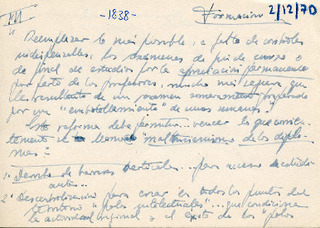 -1838-
Formación
2/12/70
"Reemplazar lo más posible, a falta de controles
indispensables, los exámenes de fin de curso o
de final de estudios por la apreciación permanente
por parte de los profesores, mucho más segura que
los resultados de un examen preparado
por un "embotellamiento" de unas semanas."
Esta reforma debe permitir vencer lo que corrien-
temente el llama "malthusianismo de los diplo-
mas":
1º de barreras para acceso
2º Descentralización para crear en todos los puntos del
territorio "polos intelectuales"... que condicionan
la actividad regional y el éxito de los "polos